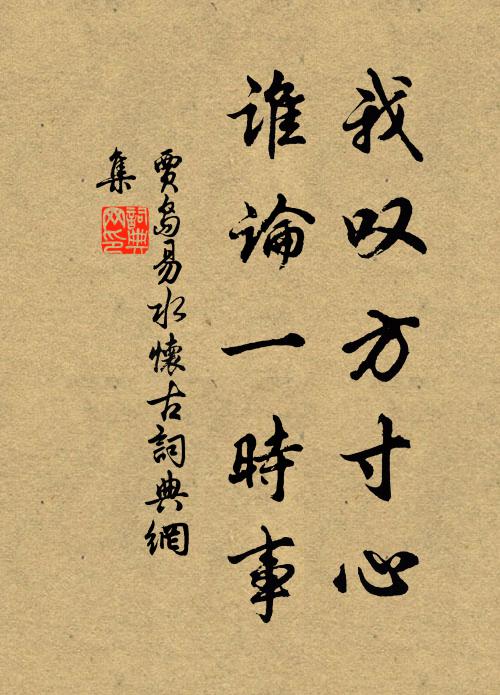 我叹方寸心
谁論一時事
賈島易水懷古詞典網
集
詞典網印